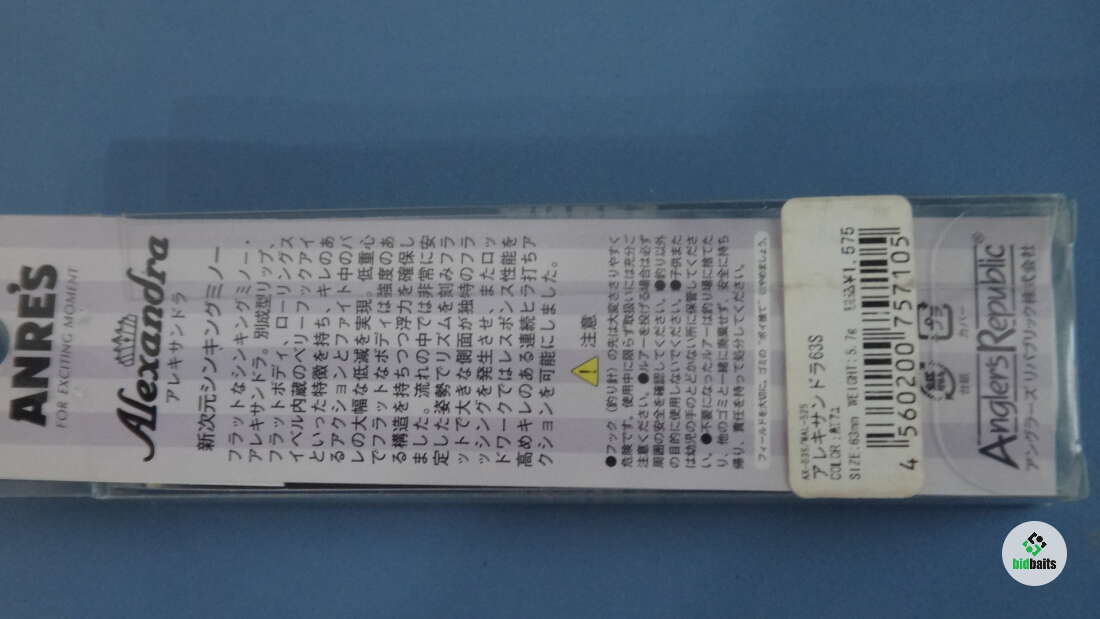 ANRE'S
FOR EXCITING MOMENT
Alexandra
アレキサンドラ
新次元シンキングミノー
フラットなシンキングミノー・
アレキサンドラ。別成型リップ、
フラットボディ、ローリングス
イベル内蔵のベリーフックアイ
といった特徴を持ち、キレのあ
るアクションとファイト中のバ
レの大幅な低減を実現。低重心
でフラットなボディは強度のあ
る構造を持ちつつ浮力を確保し
ました。流れの中では非常に安
定した姿勢でリズムを刻みフラ
ットで大きな側面が独特のフラ
ッシングを発生させ、またロッ
ドワークではレスポンス性能を
高めキレのある連続ヒラ打ちア
クションを可能にしました。
注意
●フック（釣り針）の先は大変ささりやすく
危険です。使用中に限らず取扱いには充分ご
注意ください。●ルアーを投げる場合は必ず
周囲の安全を確認してください。●釣り以外
の目的に使用しないでください。●子供また
は幼児の手のとどかない所に保管してくださ
い。●不要になったルアーは釣り場に捨てた
り、他のゴミと一緒に廃棄せず、安全に持ち
帰り、責任を持って処分してください。
フィールドを大切に、ゴミの"ポイ捨て"はやめましょう。
AX-63S/WAL-525
アレキサンドラ63S
COLOR:ｶﾞｱﾕ
SIZE:63mm WEIGHT:5.7g 税込¥1,575
4560200757105
紙
台紙
プラ
カバー
AnglersRepublic
アングラーズリパブリック株式会社
bidbaits